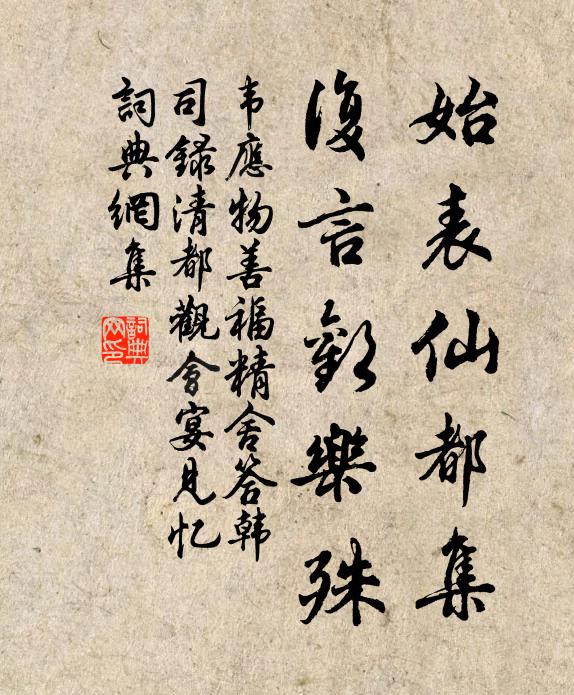 始表仙都集
復言歡樂殊
韦應物善福精舍答韩
司錄清都觀會宴見忆
詞典網集
詞典
网印